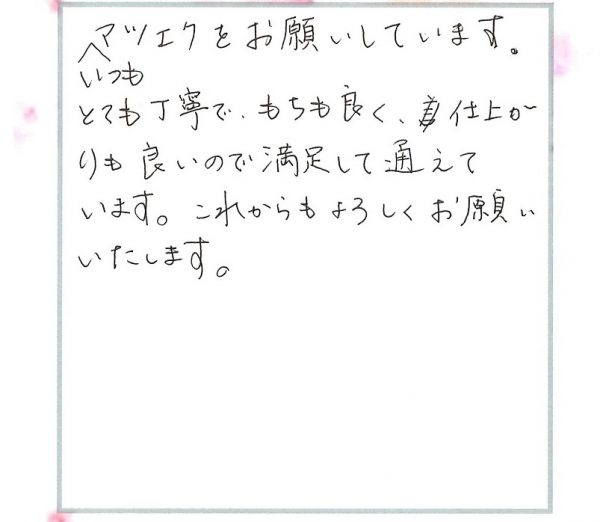 いつもマツエクをお願いしています。
とても丁寧で、もちも良く、仕上が
りも良いので満足して通えて
います。これからもよろしくお願い
いたします。